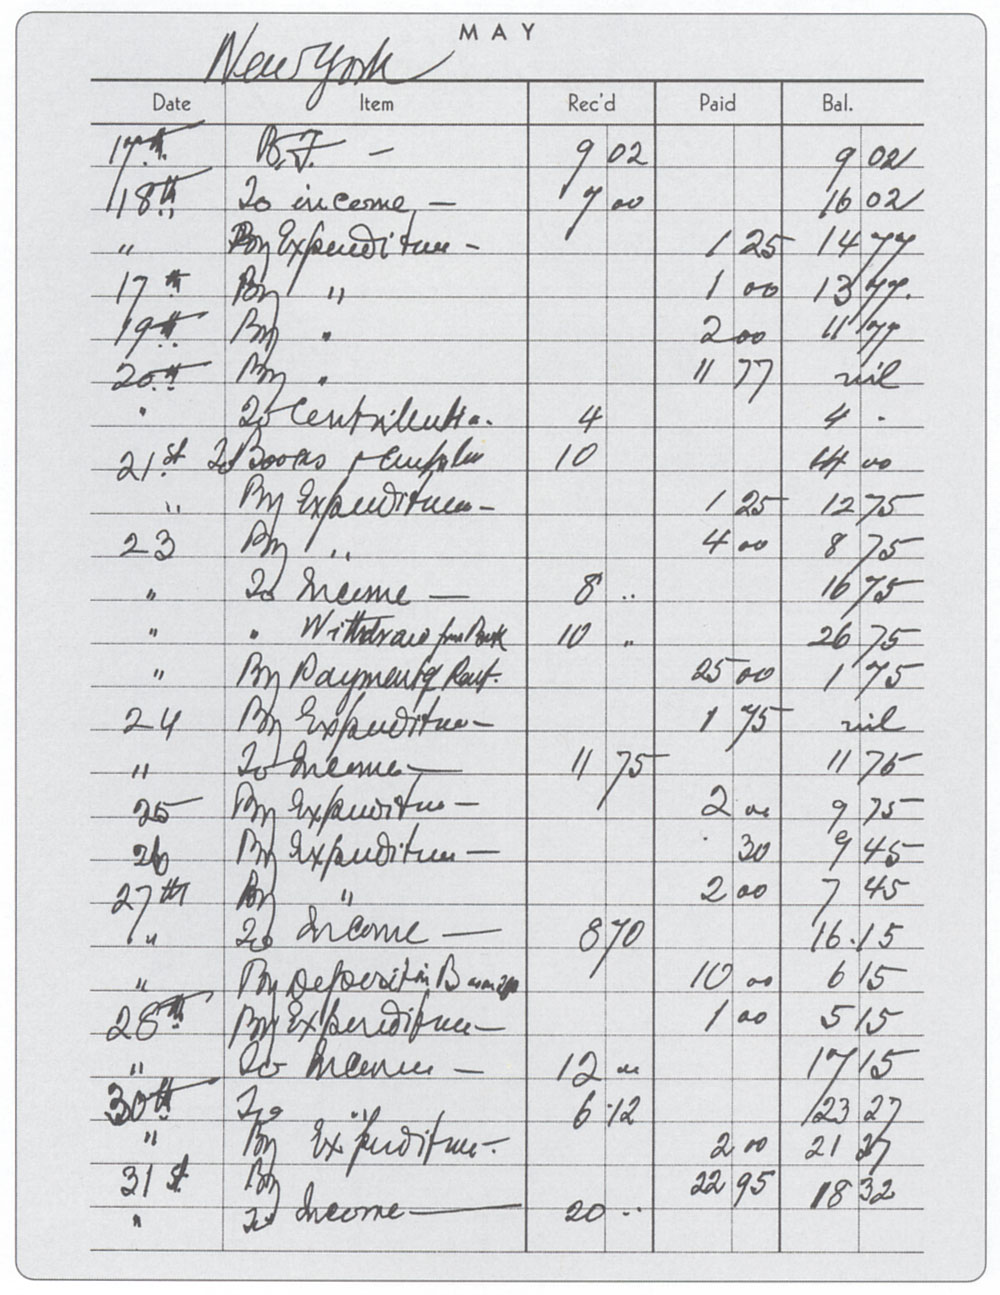 MAY
New York
Date Item Rec'd Paid Bal.
17th B.F. - 9 02 9 02
18th To income, - 7 00 16 02
" By Expenditure - 1 25 14 77
17th By " 1 00 13 77.
19th By " 2 00 11 77
20th By " 11 77 nil
" To Contribution. 4 4 -
21st To Books + 10 14 00
" By Expenditure - 1 25 12 75
23 By " 4 00 8 75
" To Income - 8 .. 16 75
" " Withdraw from Bank 10 .. 26 75
" By Payment of Rent. 25 00 1 75
24 By Expenditure - 1 75 nil
" To Income - 11 75 11 75
25 By Expenditure - 2 00 9 75
26 By Expenditure - 30 9 45
27th By " 2 00 7 45
" To Income - 8 70 16.15
" By Deposit in B 10 00 6 15
28th By Expenditure - 1 00 5 15
" To Income - 12 00 17 15
30th To " 6.12 23 27
" By Expenditure - 2 00 21 27
31st By 22 95 18 32
" To Income - 20 ..